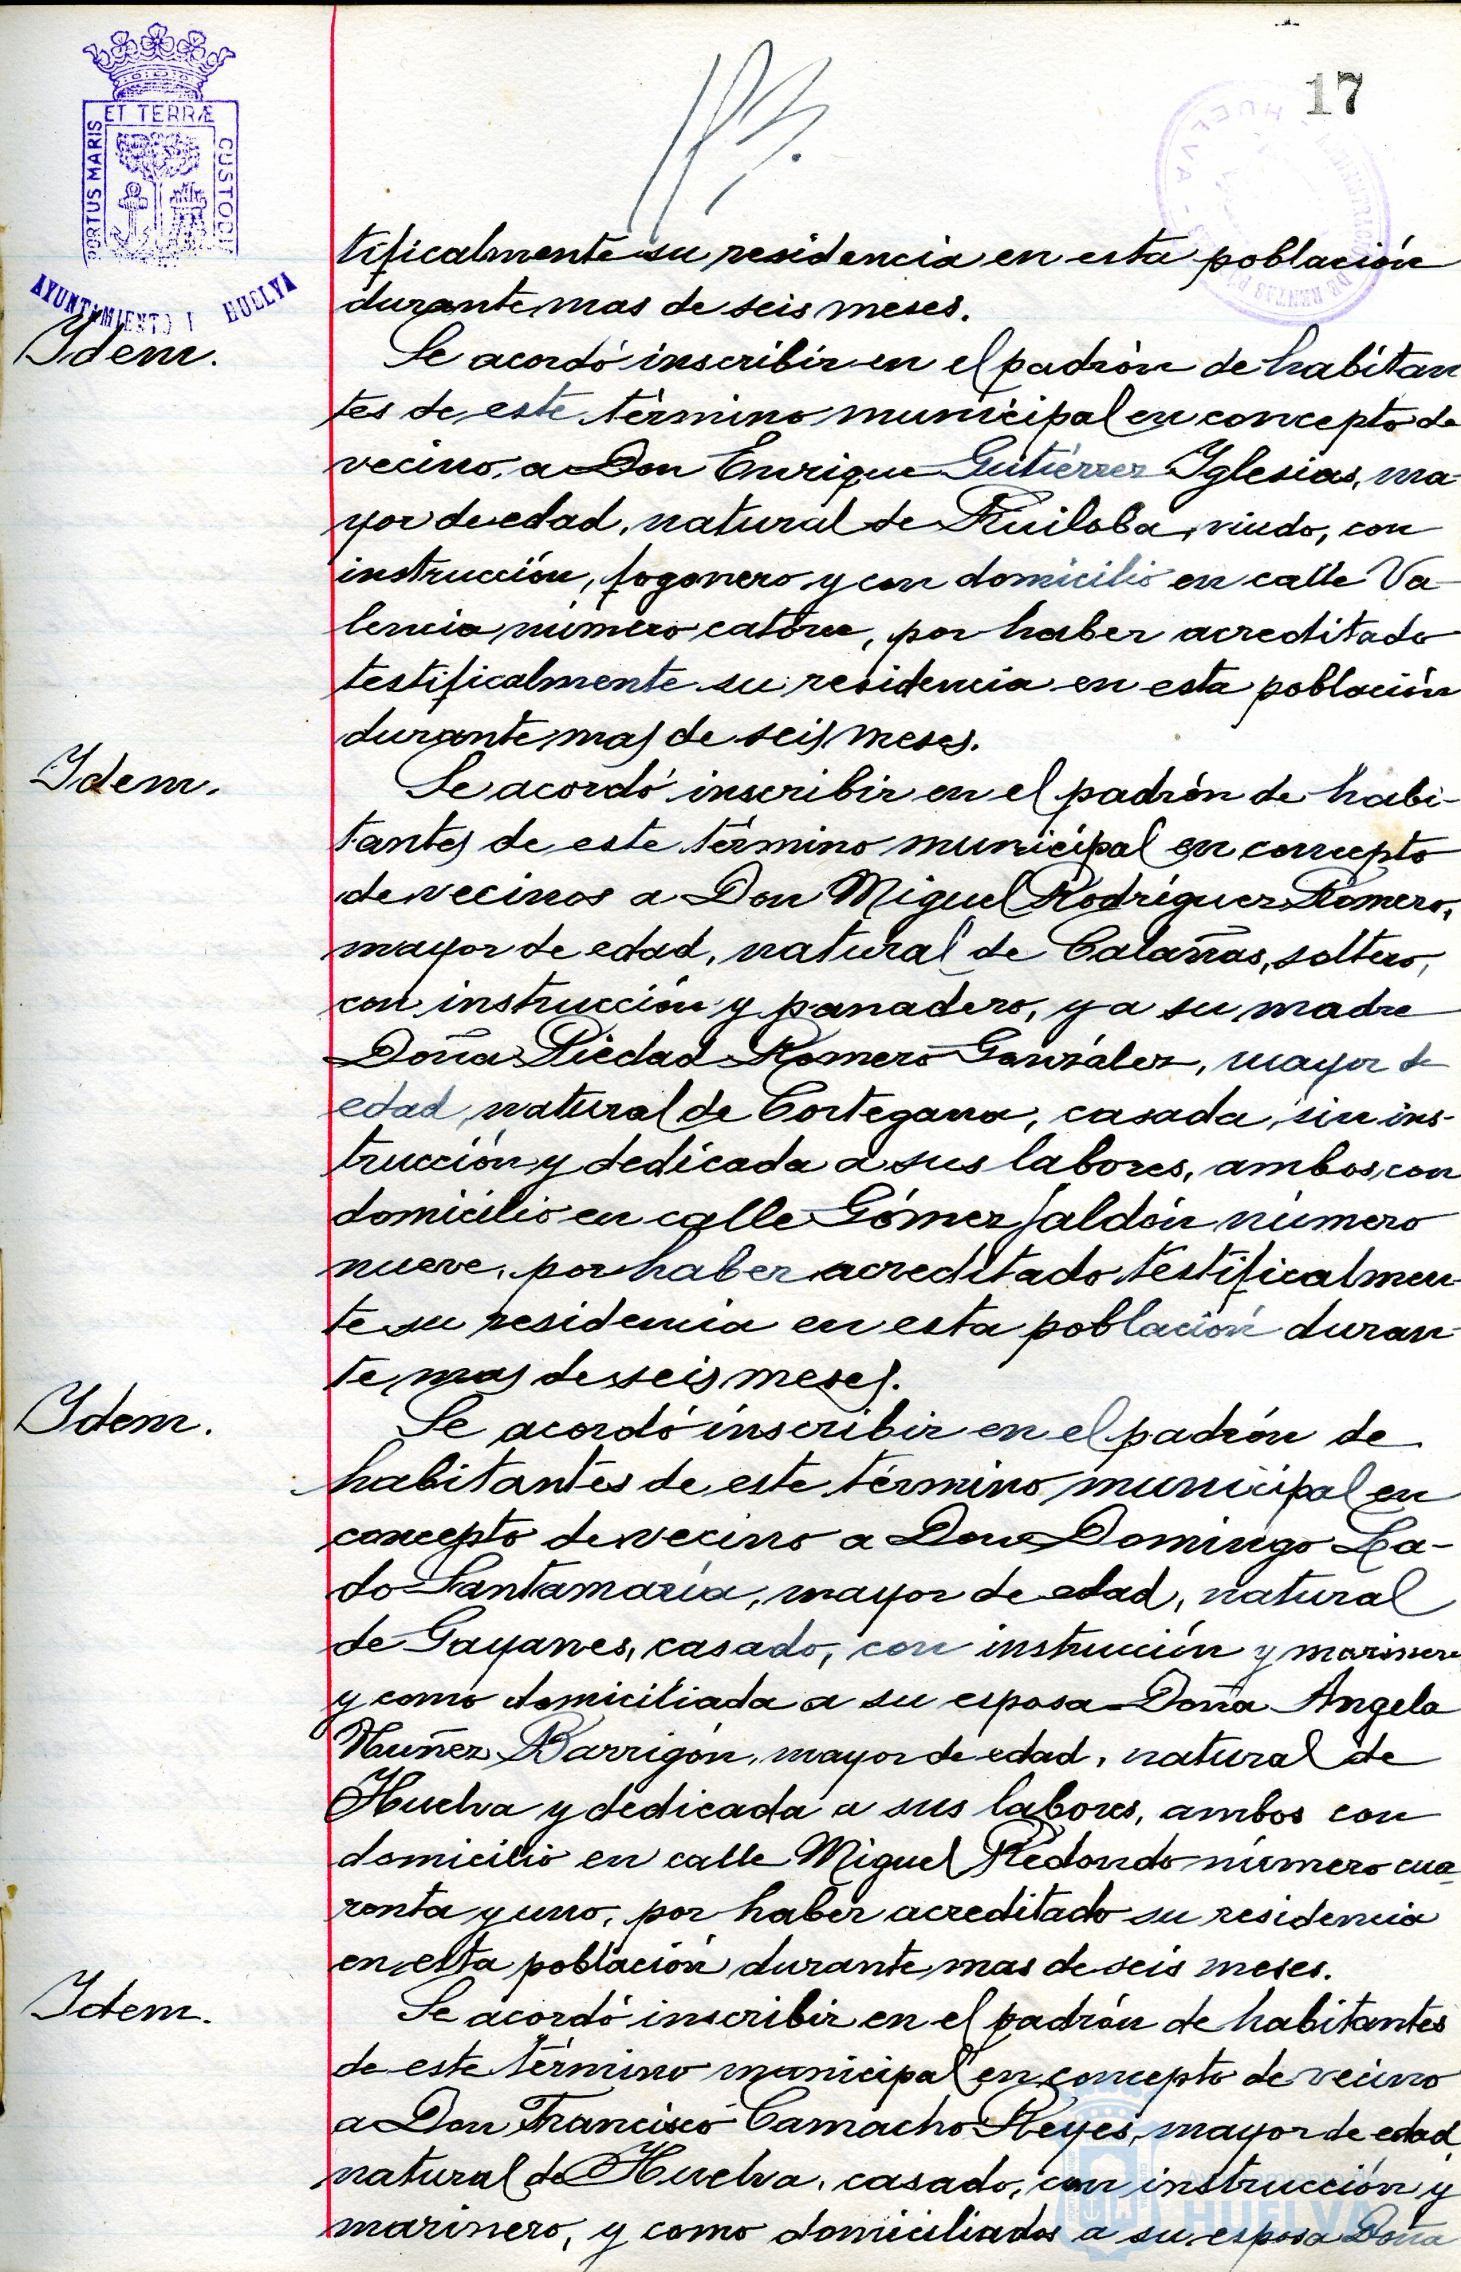 17
ET TERRÆ
PORTUS MARIS
CUSTODIA
AYUNTAMIENTO HUELVA
tificalmente su residencia en esta población
durante mas de seis meses.
Idem.
Se acordó inscribir en el padrón de habitan
tes de este término municipal en concepto de
vecino, a Don Enrique Gutiérrez Iglesias, ma
yor de edad, natural de Ruiloba, viudo, con
instrucción, fogonero y con domicilio en calle Va-
lencia número catorce, por haber acreditado
testificalmente su residencia en esta población
durante mas de seis meses.
Idem.
Se acordó inscribir en el padrón de habi-
tantes de este término municipal en concepto
de vecinos a Don Miguel Rodríguez Romero,
mayor de edad, natural de Calañas, soltero,
con instrucción y panadero, y a su madre
Doña Piedad Romero González, mayor de
edad, natural de Cortegana, casada, sin ins-
trucción y dedicada a sus labores, ambos con
domicilio en calle Gómez Jaldón número
nueve, por haber acreditado testificalmen-
te su residencia en esta población duran-
te mas de seis meses.
Idem.
Se acordó inscribir en el padrón de
habitantes de este término municipal en
concepto de vecino a Don Domingo La-
do Santamaría, mayor de edad, natural
de Gayanes, casado, con instrucción y marinero
y como domiciliada a su esposa Doña Angela
Nuñez Barrigón, mayor de edad, natural de
Huelva y dedicada a sus labores, ambos con
domicilio en calle Miguel Redondo número cua-
renta y uno, por haber acreditado su residencia
en esta población durante mas de seis meses.
Idem.
Se acordó inscribir en el padrón de habitantes
de este término municipal en concepto de vecino
a Don Francisco Camacho Reyes, mayor de edad,
natural de Huelva, casado, con instrucción y
marinero, y como domiciliados a su esposa Doña
Ayuntamiento de
HUELVA